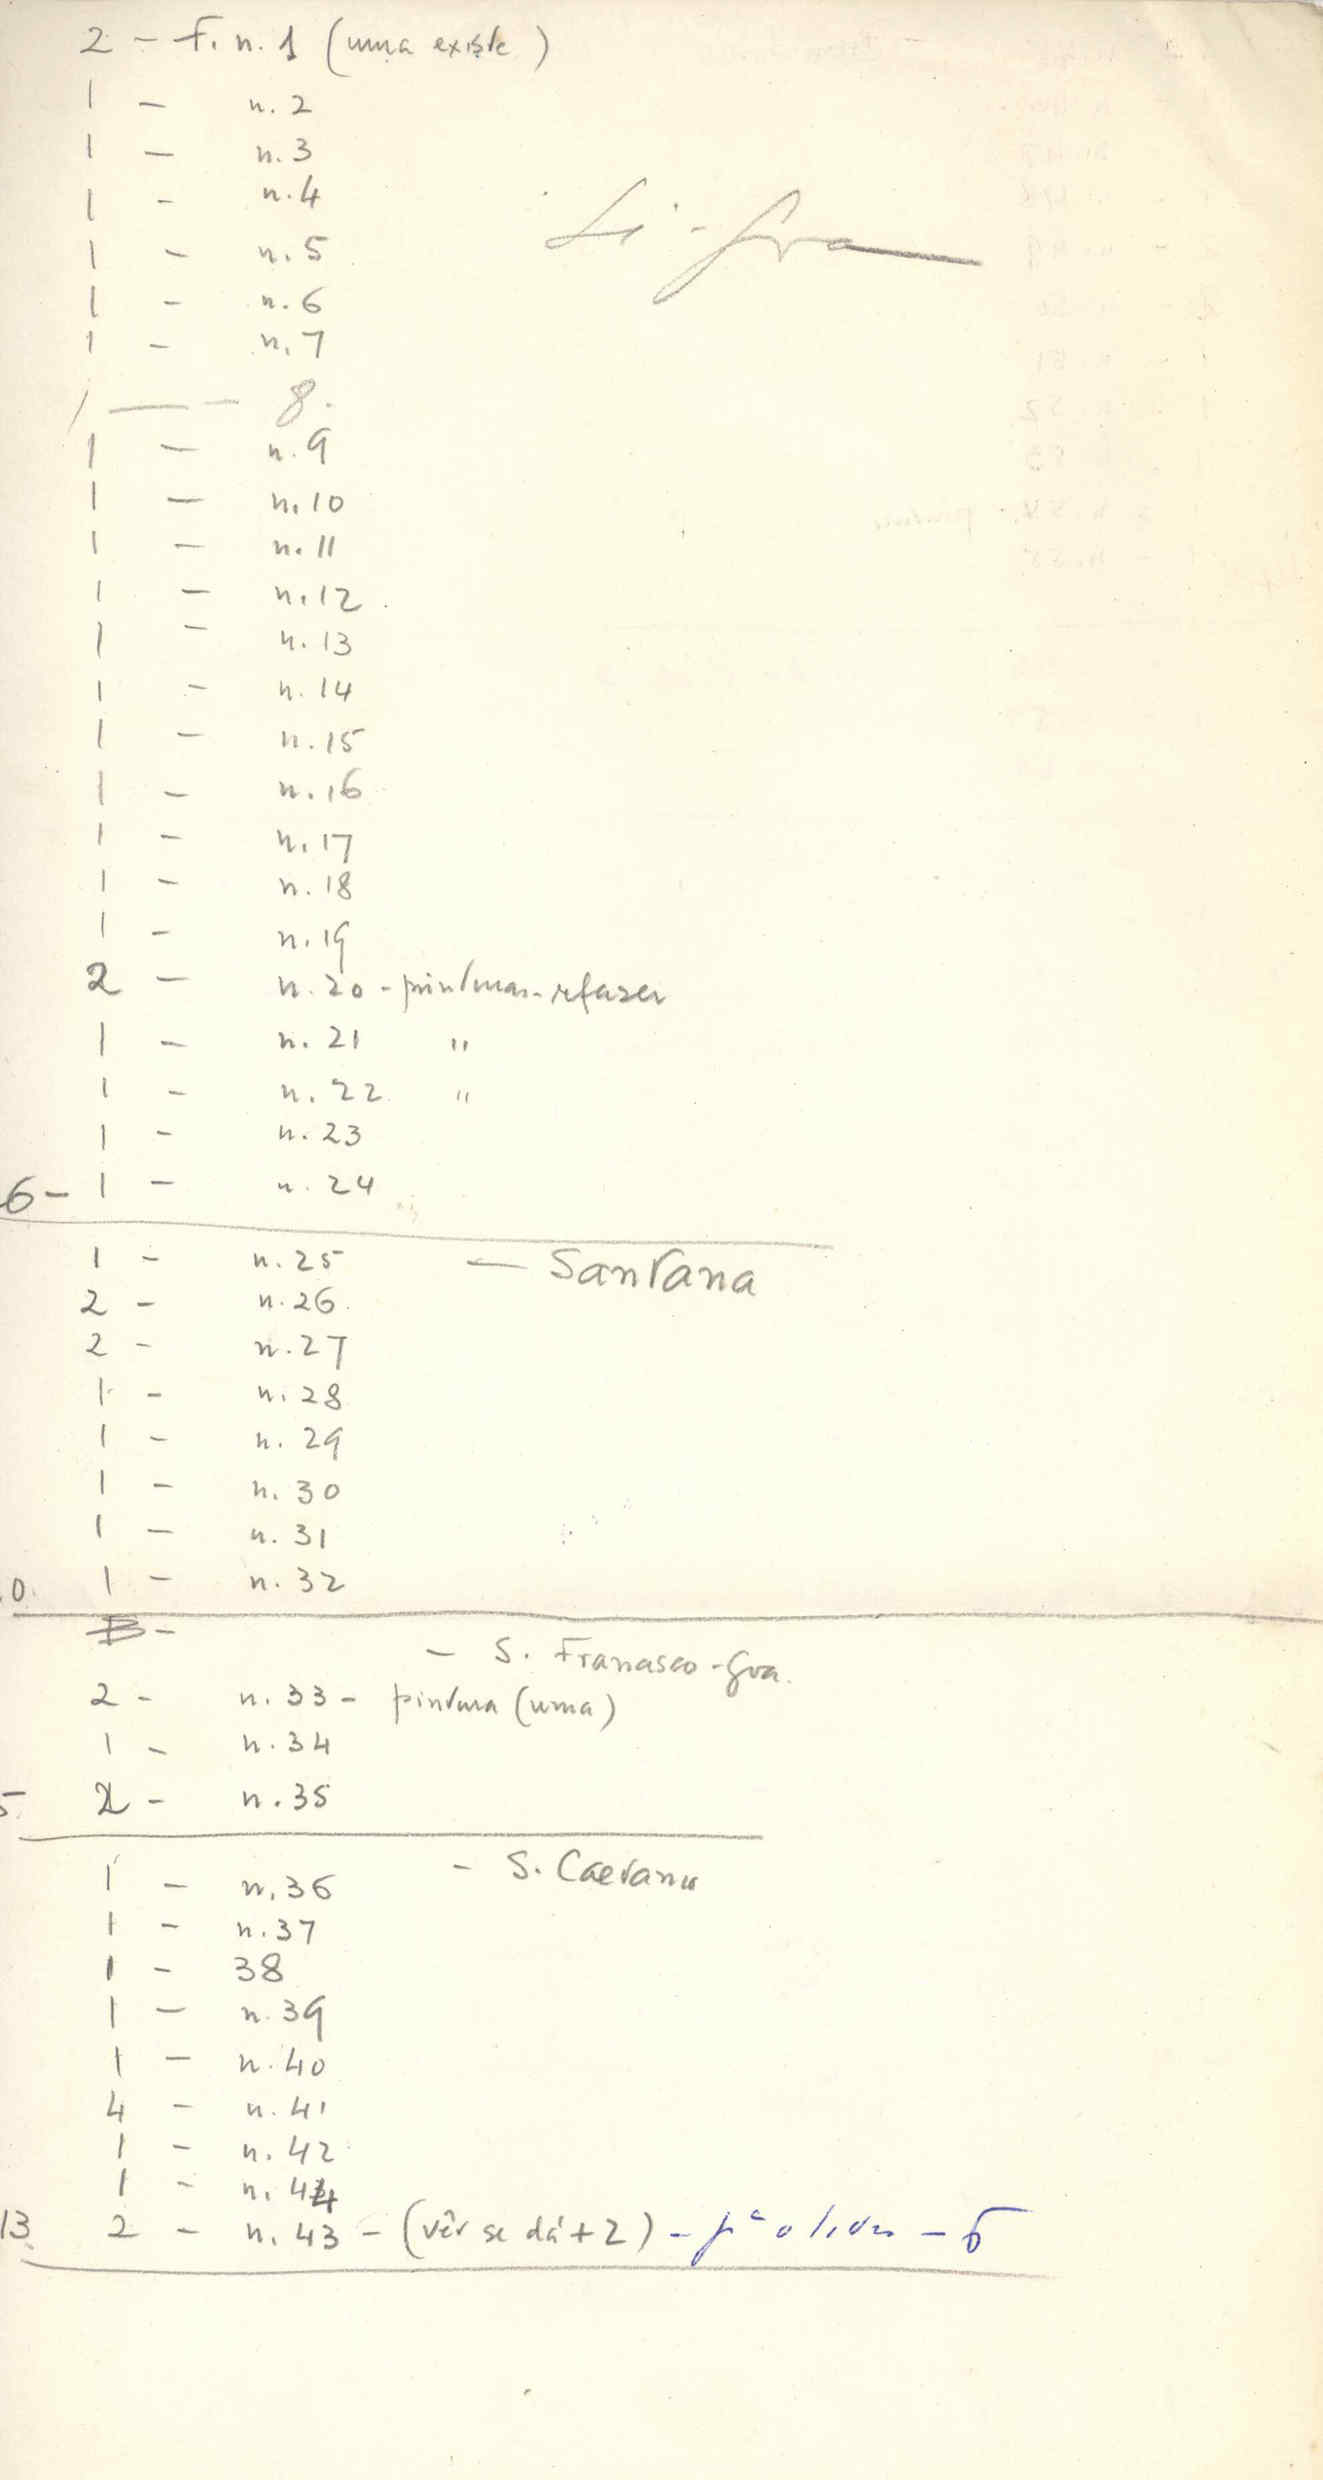 2 - F. n. 1 (uma existe)
1 - n. 2
1 - n. 3
1 - n. 4
Sé - Goa
1 - n. 5
1 - n. 6
1 - n. 7
1 - - 8.
1 - n. 9
1 - n. 10
1 - n. 11
1 - n. 12
1 - n. 13
1 - n. 14
1 - n. 15
1 - n. 16
1 - n. 17
1 - n. 18
1 - n. 19
2 - n. 20 - pinturas - refazer
1 - n. 21 "
1 - n. 22 "
1 - n. 23
6 - 1 - n. 24
1 - n. 25 - Santana
2 - n. 26
2 - n. 27
1 - n. 28
1 - n. 29
1 - n. 30
1 - n. 31
0. 1 - n. 32
B -
- S. Francisco - Goa.
2 - n. 33 - pintura (uma)
1 - n. 34
5. 2 - n. 35
- S. Caetano
1 - n. 36
1 - n. 37
1 - 38
1 - n. 39
1 - n. 40
4 - n. 41
1 - n. 42
1 - n. 44
13. 2 - n. 43 - (vêr se dá + 2) - pª o livro - 6